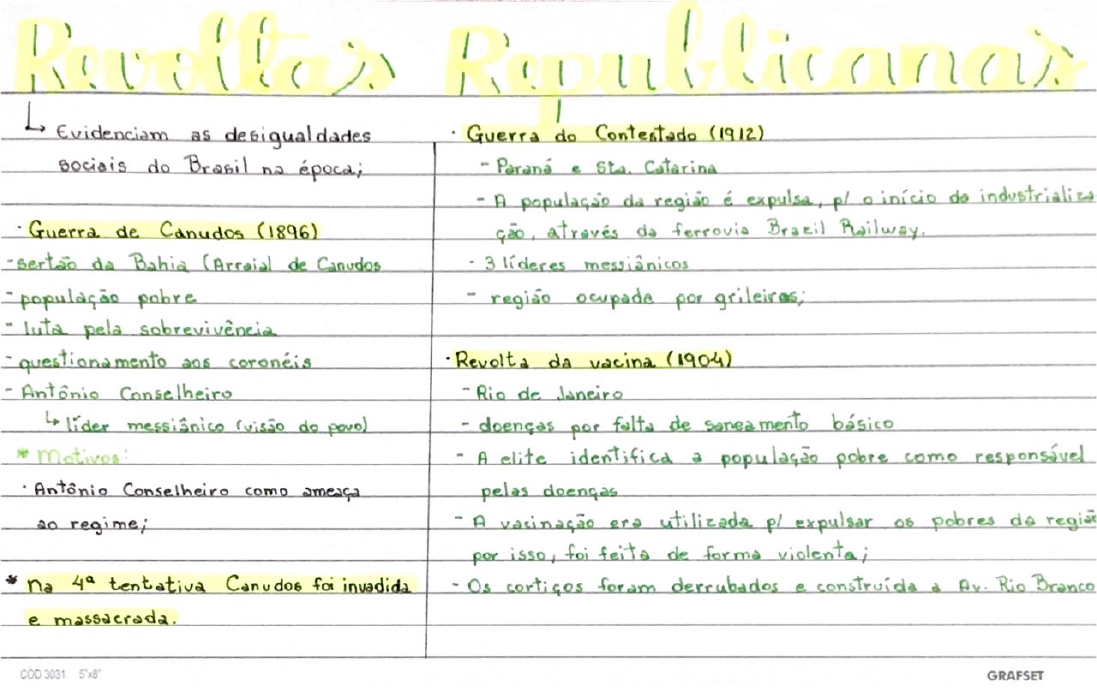 Revoltas Republicanas
↳ Evidenciam as desigualdades
sociais do Brasil na época;
· Guerra de Canudos (1896)
- sertão da Bahia (Arraial de Canudos
- população pobre
- luta pela sobrevivência
- questionamento aos coronéis
- Antônio Conselheiro
↳ líder messiânico (visão do povo)
* Motivos:
· Antônio Conselheiro como ameaça
ao regime;
* Na 4ª tentativa Canudos foi invadida
e massacrada.
· Guerra do Contestado (1912)
- Paraná e Sta. Catarina
- A população da região é expulsa, p/ o início da industrializa
ção, através da ferrovia Brazil Railway.
- 3 líderes messiânicos
- região ocupada por grileiros;
· Revolta da vacina (1904)
- Rio de Janeiro
- doenças por falta de saneamento básico
- A elite identifica a população pobre como responsável
pelas doenças
- A vacinação era utilizada p/ expulsar os pobres da região
por isso, foi feita de forma violenta;
- Os cortiços foram derrubados e construída a Av. Rio Branco
CÓD 3031 5"x8"
GRAFSET